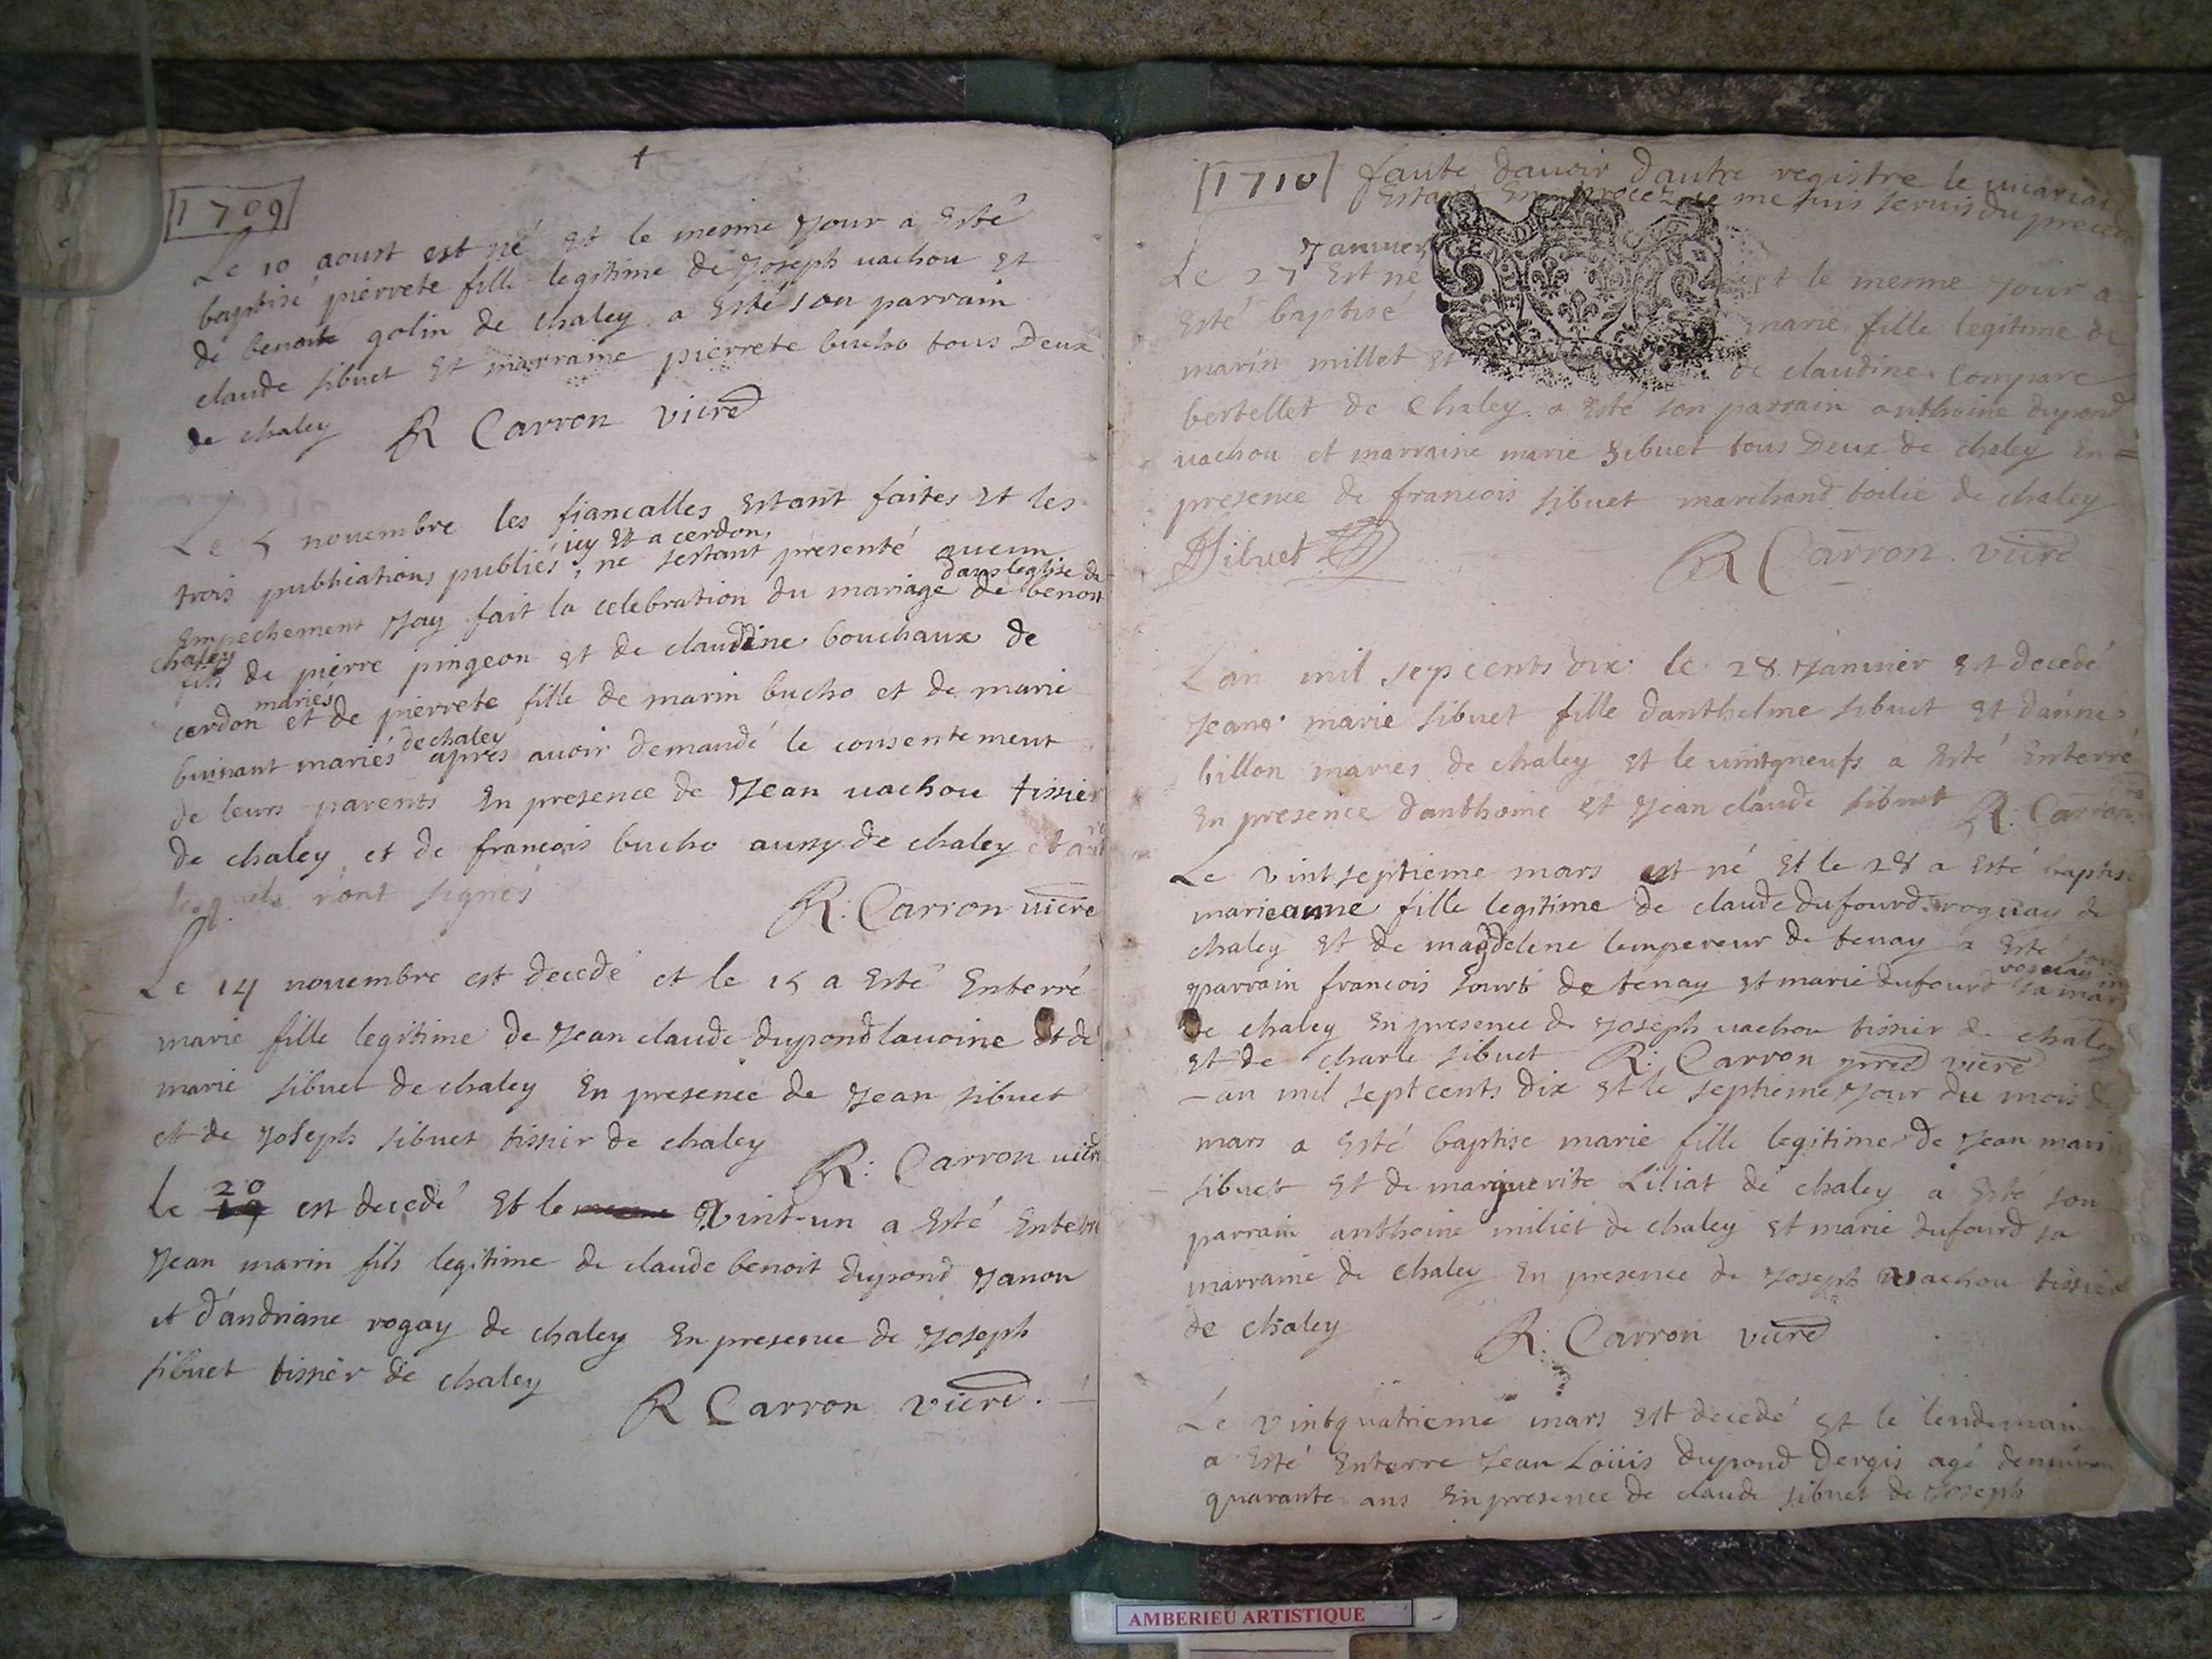 1709
Le 10 aoust est né et le mesme Jour a Esté
baptisé pierrete fille legitime de Joseph uachou et
de benoite golin de chaley a Esté son parrain
claude sibuet Et marraine pierrete bucho tous Deux
de chaley R Carron vicre
Le 5 nouembre les fiancalles Estant faites Et les
icy Et a cerdon
trois publications publiés, ne sestant presenté aucun
dans leglise de
Empechement Jay fait la celebration du mariage de benoit
chaley
fils de pierre pingeon et de claudine bouchaux de
mariés
cerdon et de pierrete fille de marin bucho et de marie
de chaley
buinant mariés apres auoir demandé le consentement
de leurs parents En presence de Jean uachou tissier
de chaley et de francois bucho aussy de chaley
lesquels nont signés
R: Carron vicre
Le 14 nouembre est decedé et le 15 a Esté Enterré
marie fille legitime de Jean claude dupond lauoine et de
marie sibuet de chaley En presence de Jean sibuet
et de Joseph sibuet tissier de chaley
R: Carron vicre
20
le 19 est decedé Et le vint-un a Esté Enterré
Jean marin fils legitime de claude benoit dupond Janon
et d'andriane rogay de chaley En presence de Joseph
sibuet tissier de chaley
R Carron vicre.
1710 faute dauoir dautre registre le
Estant En procez Je me suis seruis du
Januier
Le 27 Est né et le mesme Jour a
Esté baptisé marie fille legitime de
marin millet et de claudine compare
bertellet de Chaley a Esté son parrain anthoine dupond
uachou et marraine marie sibuet tous Deux de chaley En =
presence de francois sibuet marchand toilie de chaley
Sibuet R Carron vicre
Lan mil sepcents dix le 28 Januier Est decedé
Jeane marie sibuet fille danthelme sibuet et danne
billon maries de chaley et le vintqneufs a Esté Enterré
En presence danthoine et Jean claude sibuet R: Carron
Le vintseptieme mars est né Et le 28 a Esté baptisé
marieanne fille legitime de claude dufourd roguay de
chaley Et de magdelene lempereur de tenay a Esté son
roguay
parrain francois de tenay et marie dufourd sa mar
de chaley En presence de Joseph uachou tissier de chaley
et de charle sibuet R: Carron pre vicre
an mil septcents dix et le septieme Jour du mois de
mars a Esté baptise marie fille legitime de Jean mari
sibuet Et de marguerite Liliat de chaley a Esté son
parrain anthoine miliet de chaley et marie dufourd sa
marraine de chaley En presence de Joseph uachou tissier
de chaley R: Carron vicre
Le vintquatrieme mars est decedé et le lendemain
a Esté Enterre Jean Loüis dupond Dergis agé denuiron
quarante ans En presence de claude sibuet de Joseph
AMBERIEU ARTISTIQUE